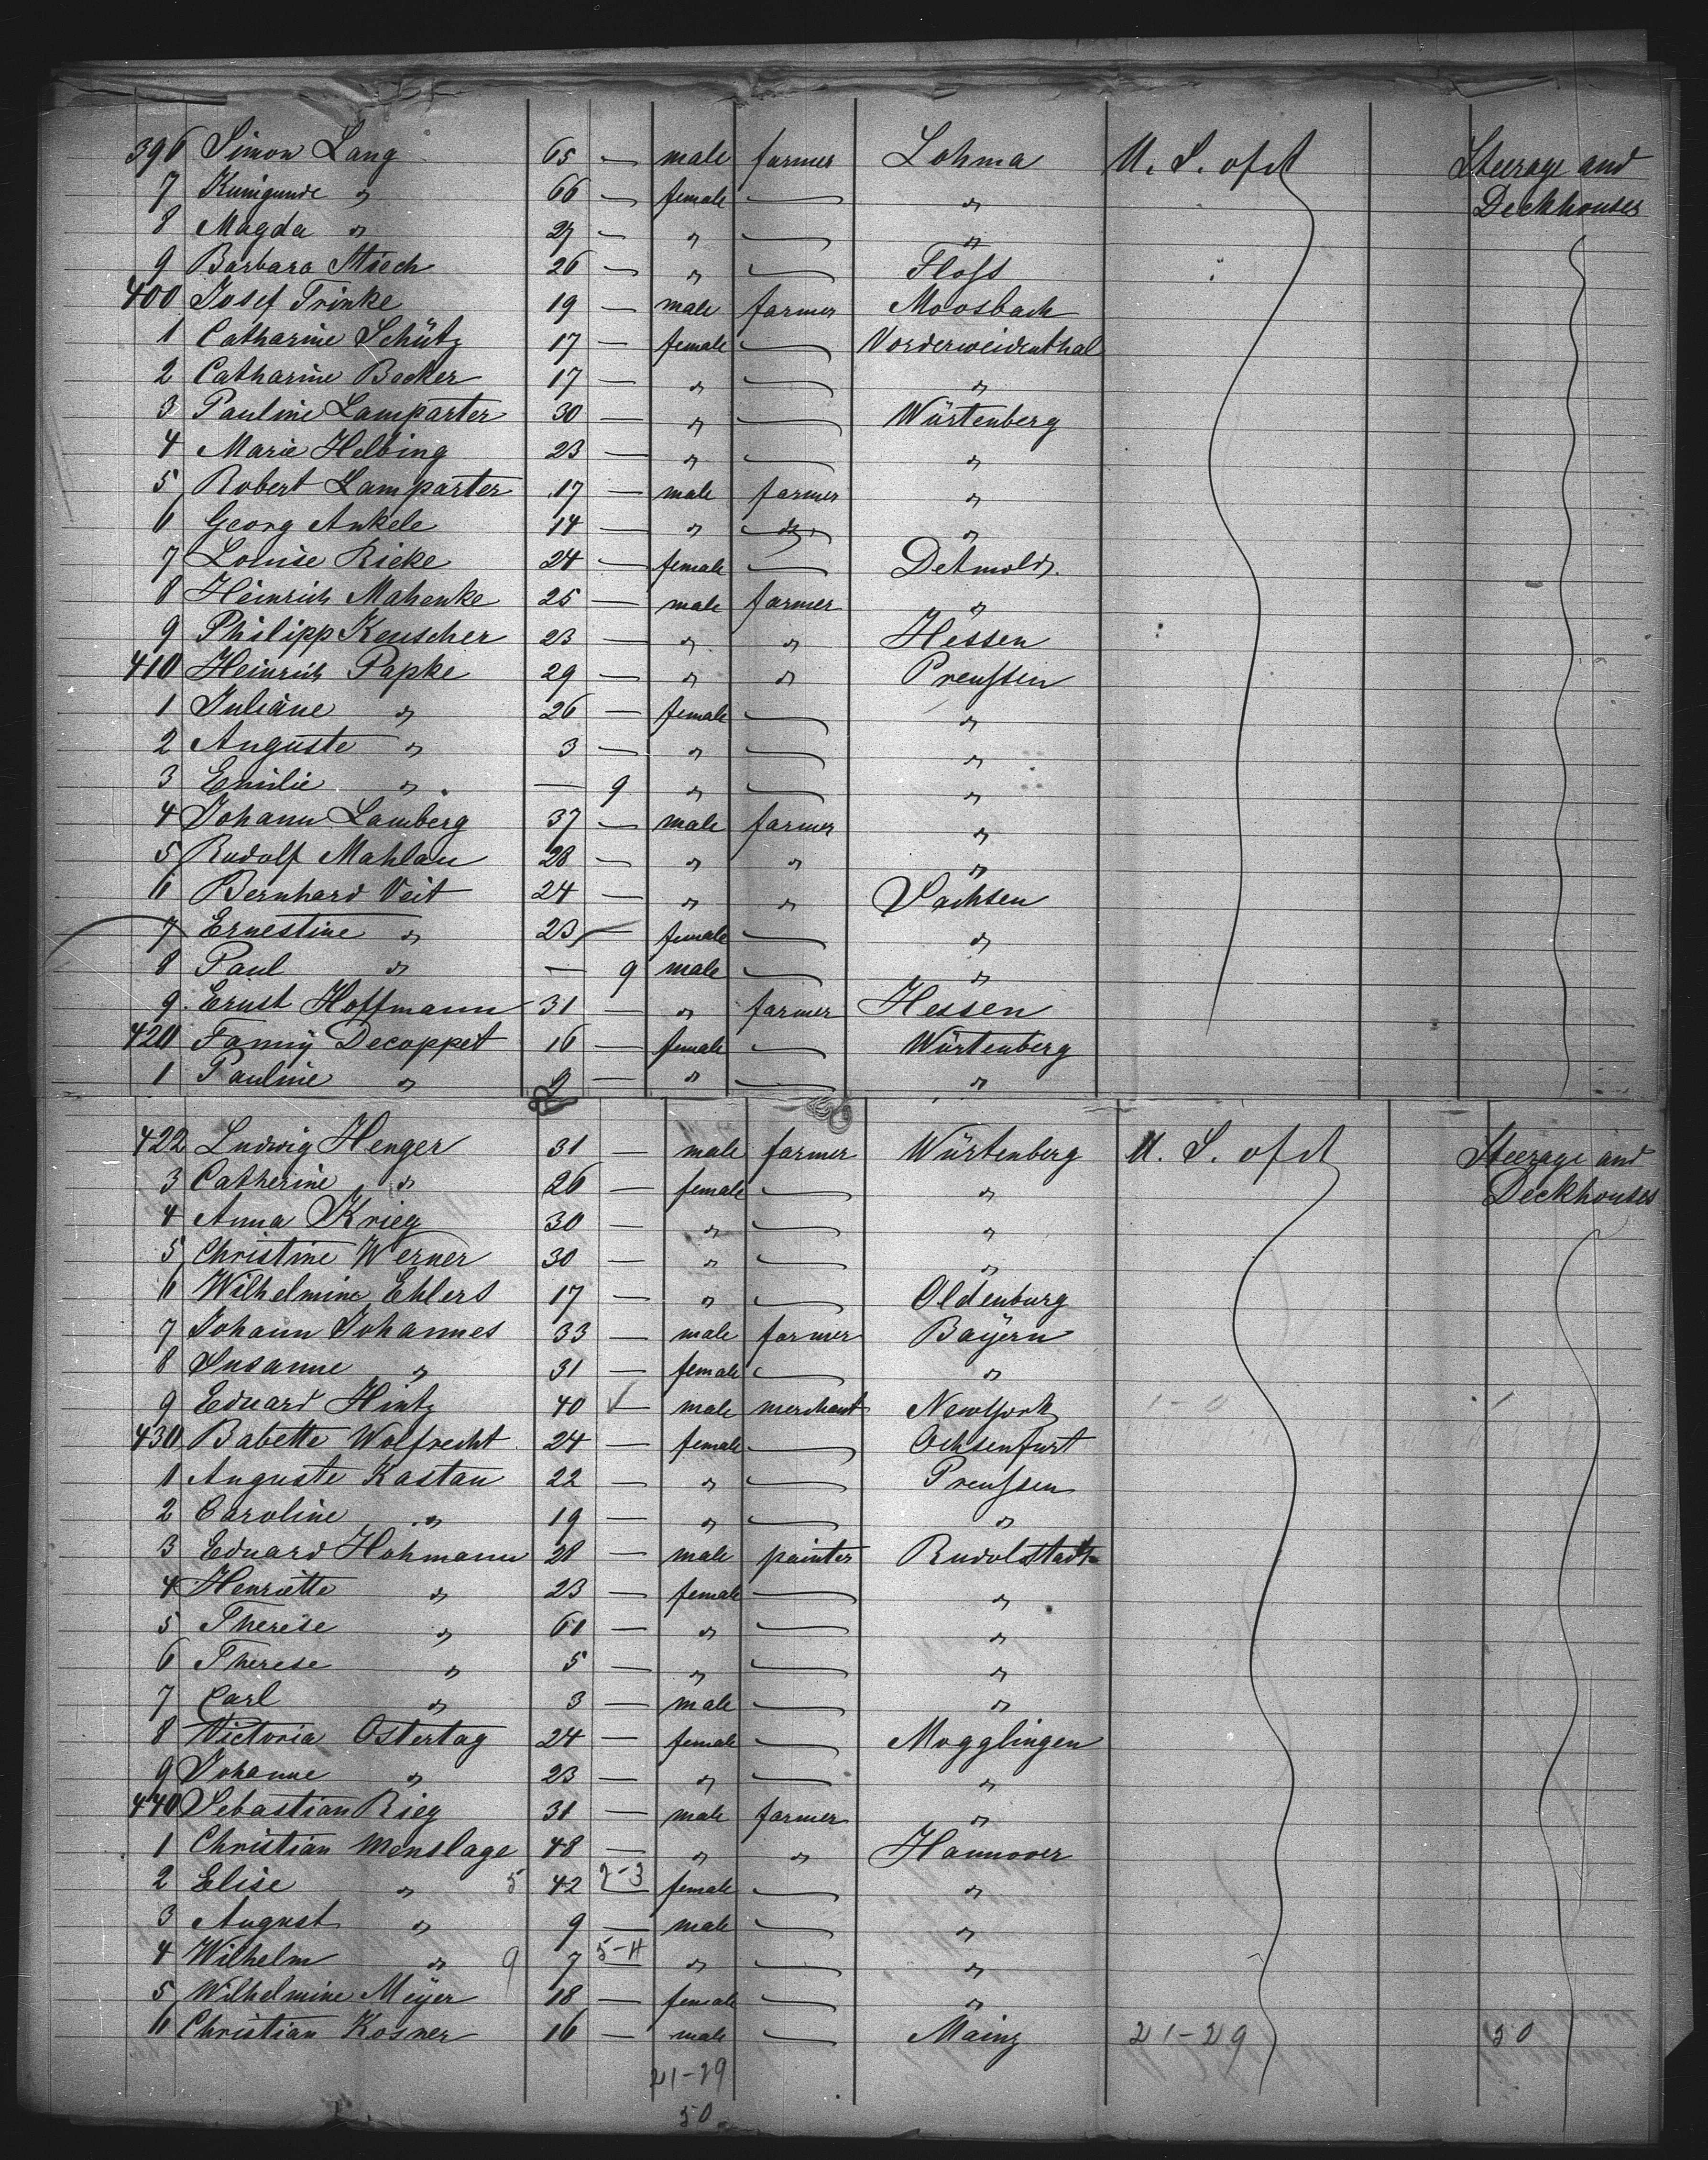 396 Simon Lang 65 — male farmer Lohma U. S. of A Steerage and
7 Kunigunde " 66 — female — " Deckhouses
8 Magda " 27 — " — "
9 Barbara 26 — " — Floss
400 Josef Trinke 19 — male farmer Moosbach
1 Catharine Schütz 17 — female — Vorderweidenthal
2 Catharine Becker 17 — " — "
3 Pauline Lamparter 30 — " — Würtenberg
4 Marie Helbing 23 — " — "
5 Robert Lamparter 17 — male farmer "
6 Georg Ankele 14 — " — "
7 Louise Rieke 24 — female — Detmold
8 Heinrich Mahenke 25 — male farmer "
9 Philipp Keuscher 23 — " " Hessen
410 Heinrich Papke 29 — " " Preussen
1 Juliane " 26 — female — "
2 Auguste " 3 — " — "
3 Emilie " — 9 " — "
4 Johann Lamberg 37 — male farmer "
5 Rudolf Mahlau 28 — " " "
6 Bernhard Veit 24 — " " Sachsen
7 Ernestine " 23 — female — "
8 Paul " — 9 male — "
9 Ernst Hoffmann 31 — " farmer Hessen
420 Fanny Decoppet 16 — female — Würtenberg
1 Pauline " 9 — " — "
422 Ludwig Henger 31 — male farmer Würtenberg U. S. of A Steerage and
3 Catherine " 26 — female — " Deckhouses
4 Anna Krieg 30 — " — "
5 Christine Werner 30 — " — "
6 Wilhelmine Ehlers 17 — " — Oldenburg
7 Johann Johannes 33 — male farmer Bayern
8 Susanne " 31 — female — "
9 Eduard Hintz 40 — male merchant NewYork 1-0 1
430 Babette Wolfrecht 24 — female — Ochsenfurt
1 Auguste Kastan 22 — " — Preussen
2 Caroline " 19 — " — "
3 Eduard Hohmann 28 — male painter Rudolstadt
4 Henriette " 23 — female — "
5 Therese " 61 — " — "
6 Therese " 5 — " — "
7 Carl " 3 — male — "
8 Victoria Ostertag 24 — female — Mogglingen
9 Johanne " 23 — " — "
440 Sebastian Rieg 31 — male farmer "
1 Christian Menslage 48 — " " Hannover
2 Elise " 5 42 2-3 female — "
3 August " 9 — male — "
4 Wilhelm " 9 7 5-4 " — "
5 Wilhelmine Meyer 18 — female — "
6 Christian Kosner 16 — male — Mainz 21-29 50
21-29
50